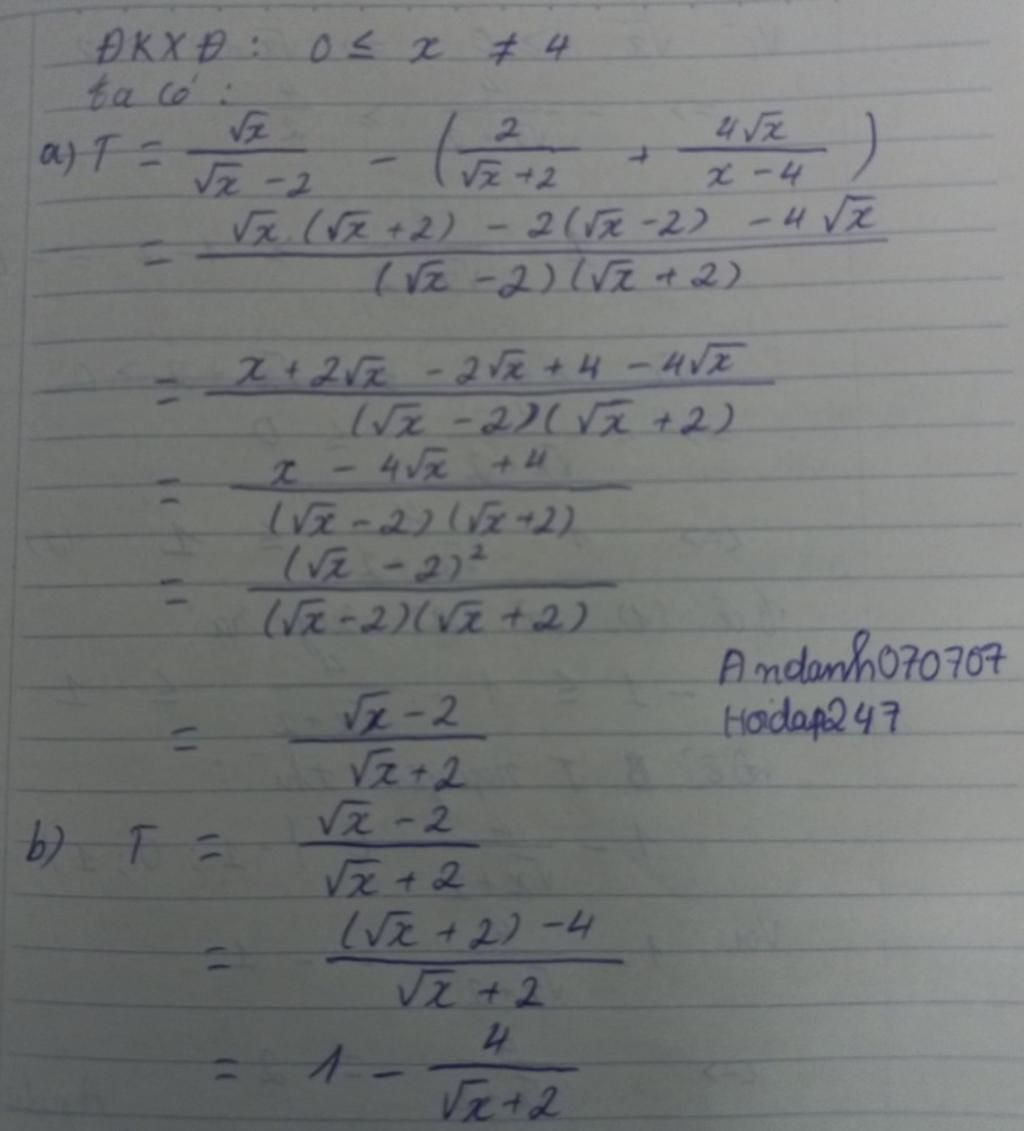 ĐKXĐ: 0 ≤ x ≠ 4
ta có:
a) T = √x / (√x - 2) - (2 / (√x + 2) + 4√x / (x - 4))
= (√x (√x + 2) - 2(√x - 2) - 4√x) / ((√x - 2)(√x + 2))
= (x + 2√x - 2√x + 4 - 4√x) / ((√x - 2)(√x + 2))
= (x - 4√x + 4) / ((√x - 2)(√x + 2))
= (√x - 2)² / ((√x - 2)(√x + 2))
Andanh070707
= (√x - 2) / (√x + 2)
Hoidap247
b) T = (√x - 2) / (√x + 2)
= ((√x + 2) - 4) / (√x + 2)
= 1 - 4 / (√x + 2)